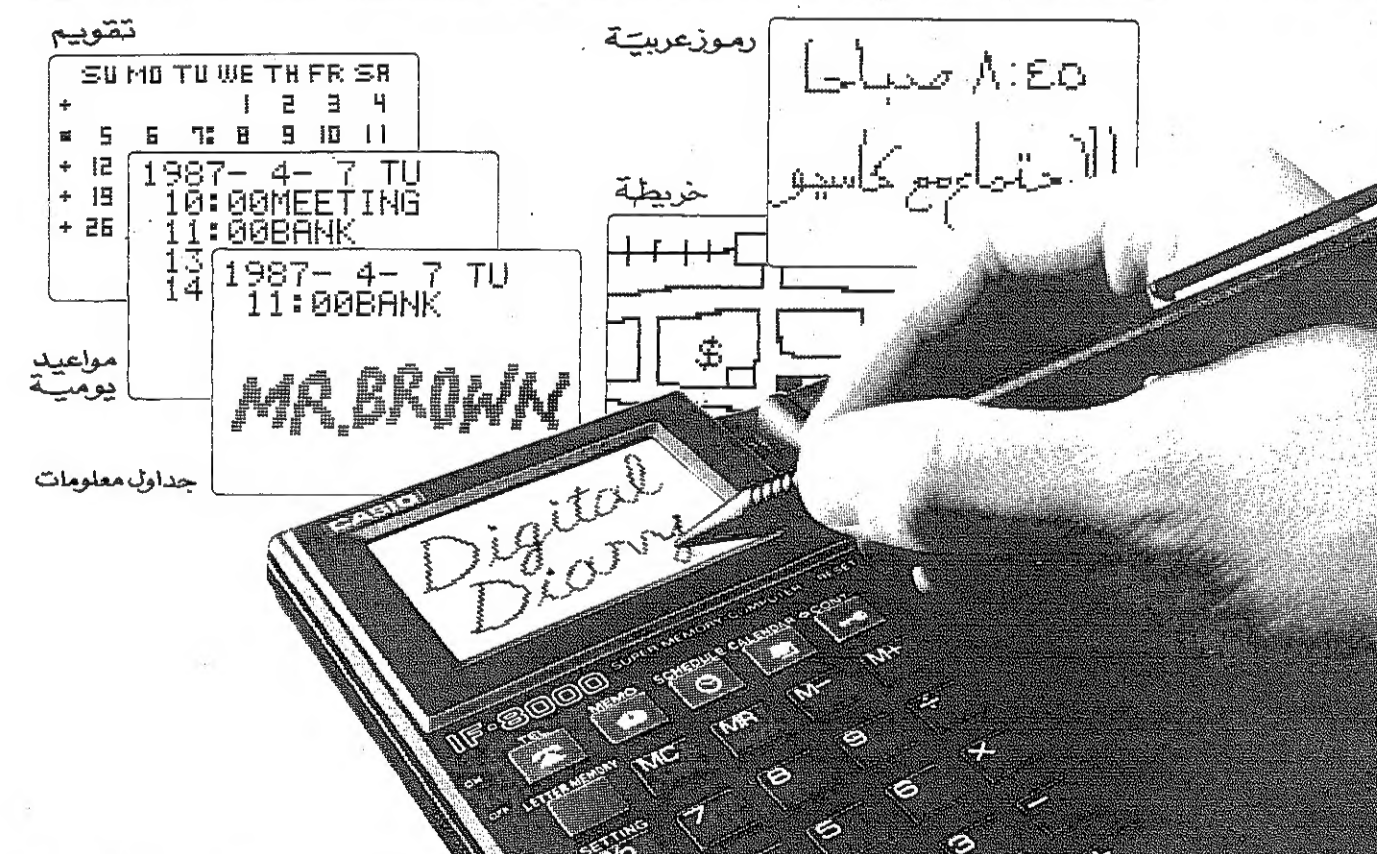 تقويم
SU MO TU WE TH FR SA
+ 1 2 3 4
5 6 7: 8 9 10 11
+ 12
+ 19
+ 26
1987- 4- 7 TU
10:00MEETING
11:00BANK
13
14
مواعيد
يومية
1987- 4- 7 TU
11:00BANK
MR.BROWN
جداول معلومات
رموز عربية
٨:٤٥ صباحا
الاجتماع مع كاسيو
خريطة
$
CASIO
Digital
Diary
IF-8000 SUPER MEMORY COMPUTER RESET
TEL MEMO SCHEDULE CALENDAR CONT
LETTER MEMORY MC MR M- M+
SETTING 7 8 9 ÷
5 6 ×
3 -
%